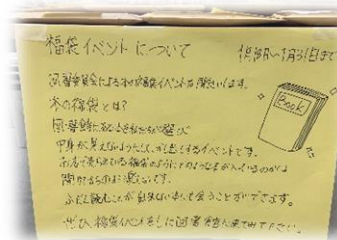 福袋イベントについて
1月31日まで
図書委員会による本の福袋イベントを開さいします。
本の福袋とは?
図書館にある本を私たちが選び
中身が見えないようにして、かし出しするイベントです。
お店で売られている福袋のようにどのような本が入っているのかは
開けてからのお楽しみです。
ふだん読むことが少ない本にも会うことができます。
ぜひ、福袋イベントをしに図書館に来てみて下さい。
Book